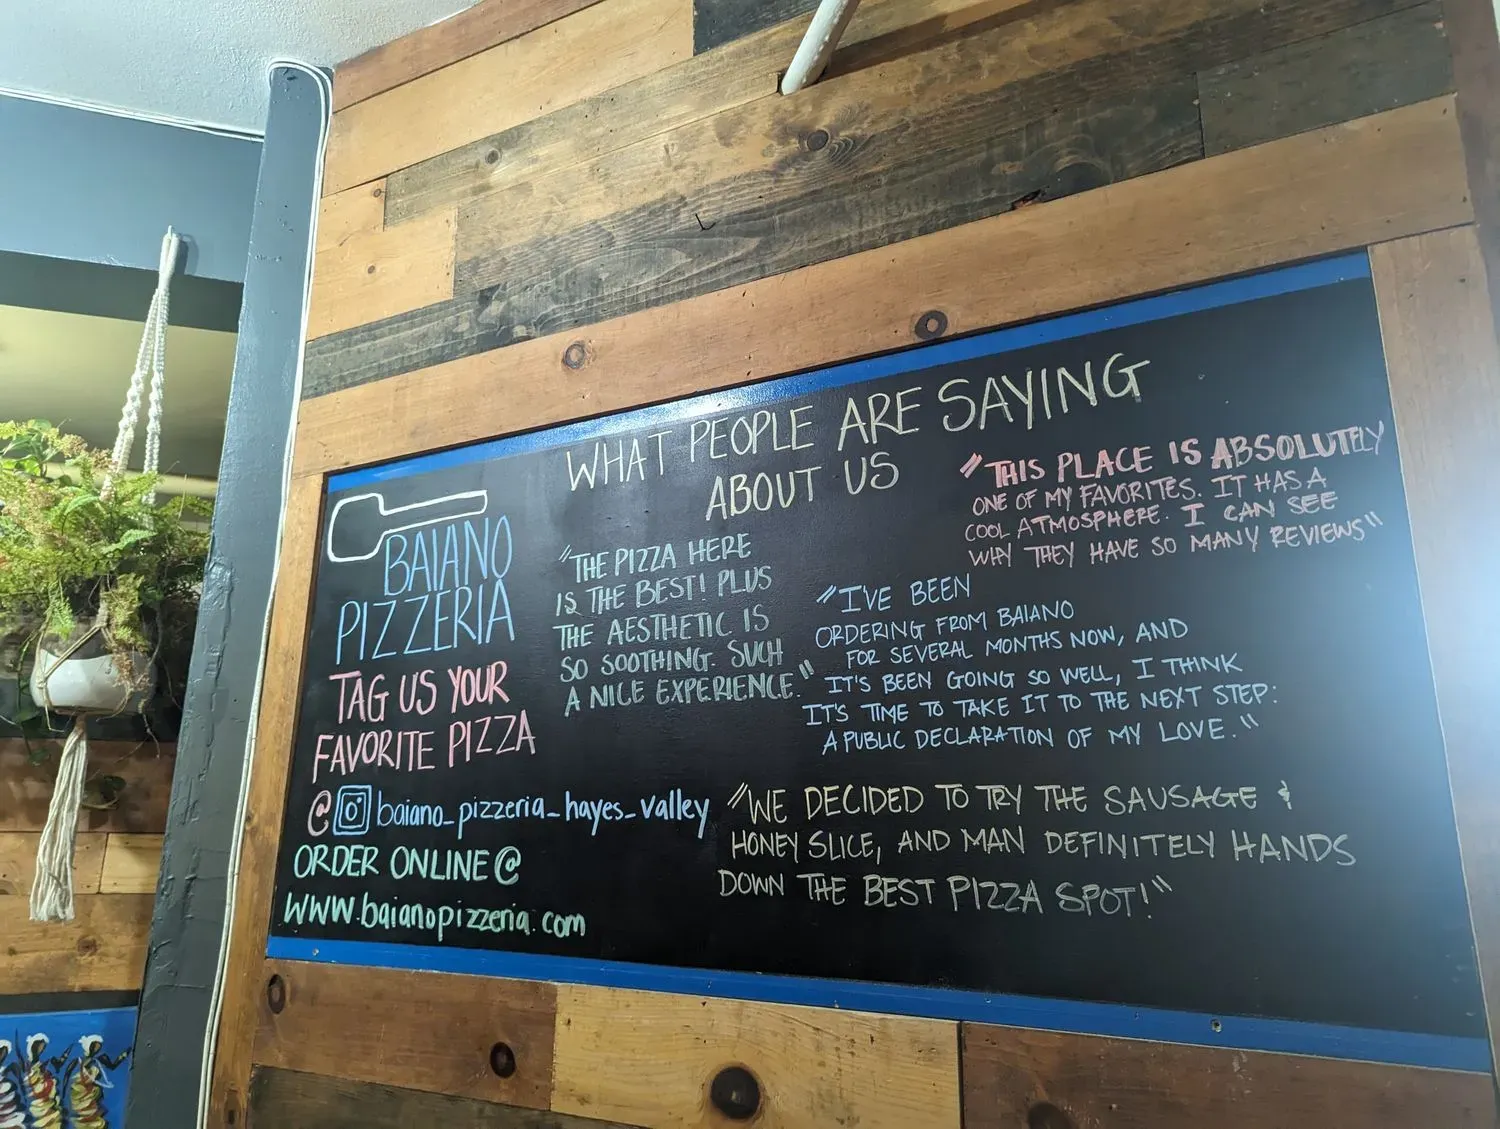 WHAT PEOPLE ARE SAYING
ABOUT US
BAIANO
PIZZERIA
TAG US YOUR
FAVORITE PIZZA
@ baiano_pizzeria_hayes_valley
ORDER ONLINE @
www.baianopizzeria.com
"THE PIZZA HERE
IS THE BEST! PLUS
THE AESTHETIC IS
SO SOOTHING. SUCH
A NICE EXPERIENCE."
"THIS PLACE IS ABSOLUTELY
ONE OF MY FAVORITES. IT HAS A
COOL ATMOSPHERE. I CAN SEE
WHY THEY HAVE SO MANY REVIEWS"
"I'VE BEEN
ORDERING FROM BAIANO
FOR SEVERAL MONTHS NOW, AND
IT'S BEEN GOING SO WELL, I THINK
IT'S TIME TO TAKE IT TO THE NEXT STEP:
A PUBLIC DECLARATION OF MY LOVE."
"WE DECIDED TO TRY THE SAUSAGE &
HONEY SLICE, AND MAN DEFINITELY HANDS
DOWN THE BEST PIZZA SPOT!"